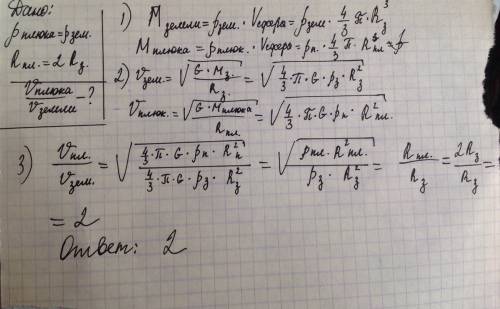 Дано:
ρплюка = ρзем.
Rпл. = 2 Rз.
Vплюка / Vземли ?
1) Mземли = ρзем. · Vсферы = ρзем · 4/3 π · R³з
Mплюка = ρплюк. · Vсферы = ρп. · 4/3 π · R³пл.
2) Vзем. = √(G · Mз. / Rз.) = √(4/3 · π · G · ρз · R²з)
Vплюк. = √(G · Mплюка / Rпл.) = √(4/3 · π · G · ρп · R²пл.)
3) Vпл. / Vзем. = √(4/3 · π · G · ρп · R²п / 4/3 · π · G · ρз · R²з) = √(ρпл. · R²пл. / ρз · R²з) = Rпл. / Rз = 2Rз / Rз =
= 2
Ответ: 2